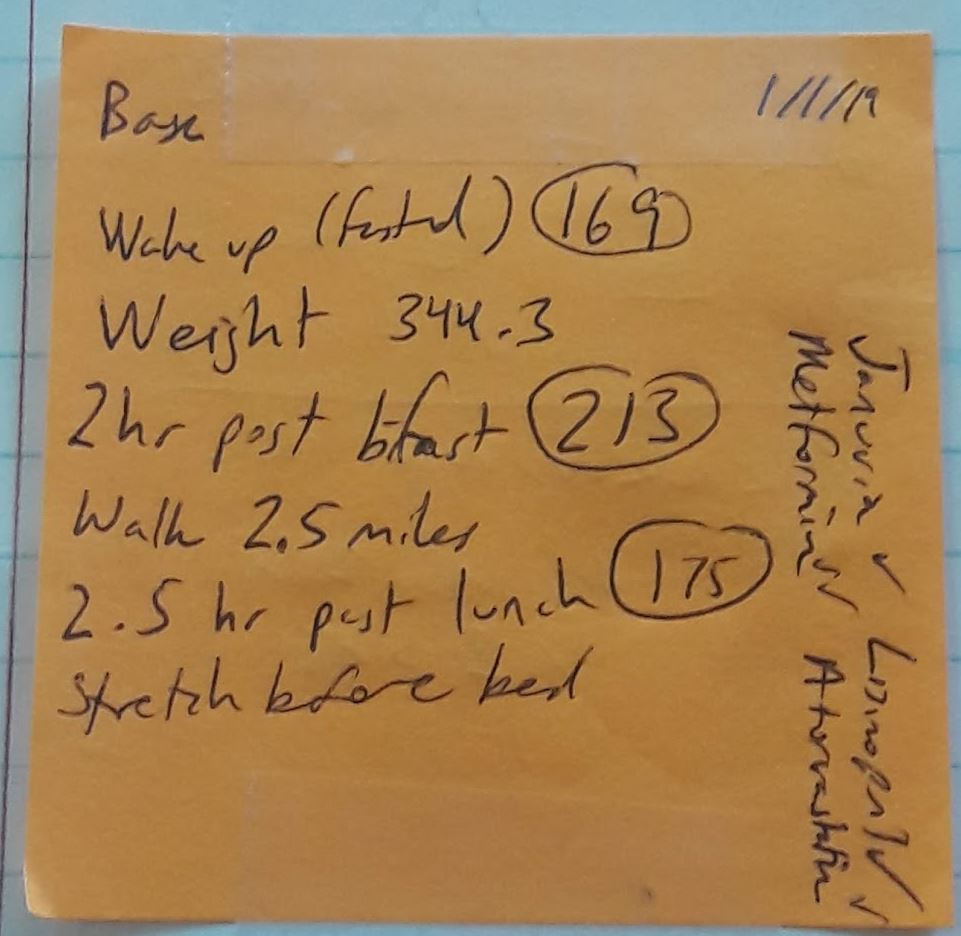 Base
1/1/19
Wake up (fasted) 169
Weight 344.3
2hr post bfast 213
Walk 2.5 miles
2.5 hr post lunch 175
Stretch before bed
Januvia ✓ Lisinopril ✓
Metformin ✓✓ Atorvastatin ✓